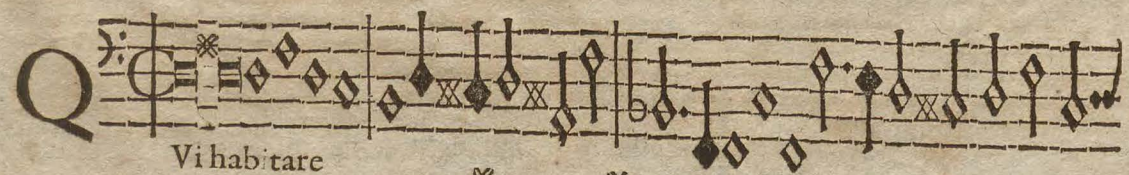 QVi habitare